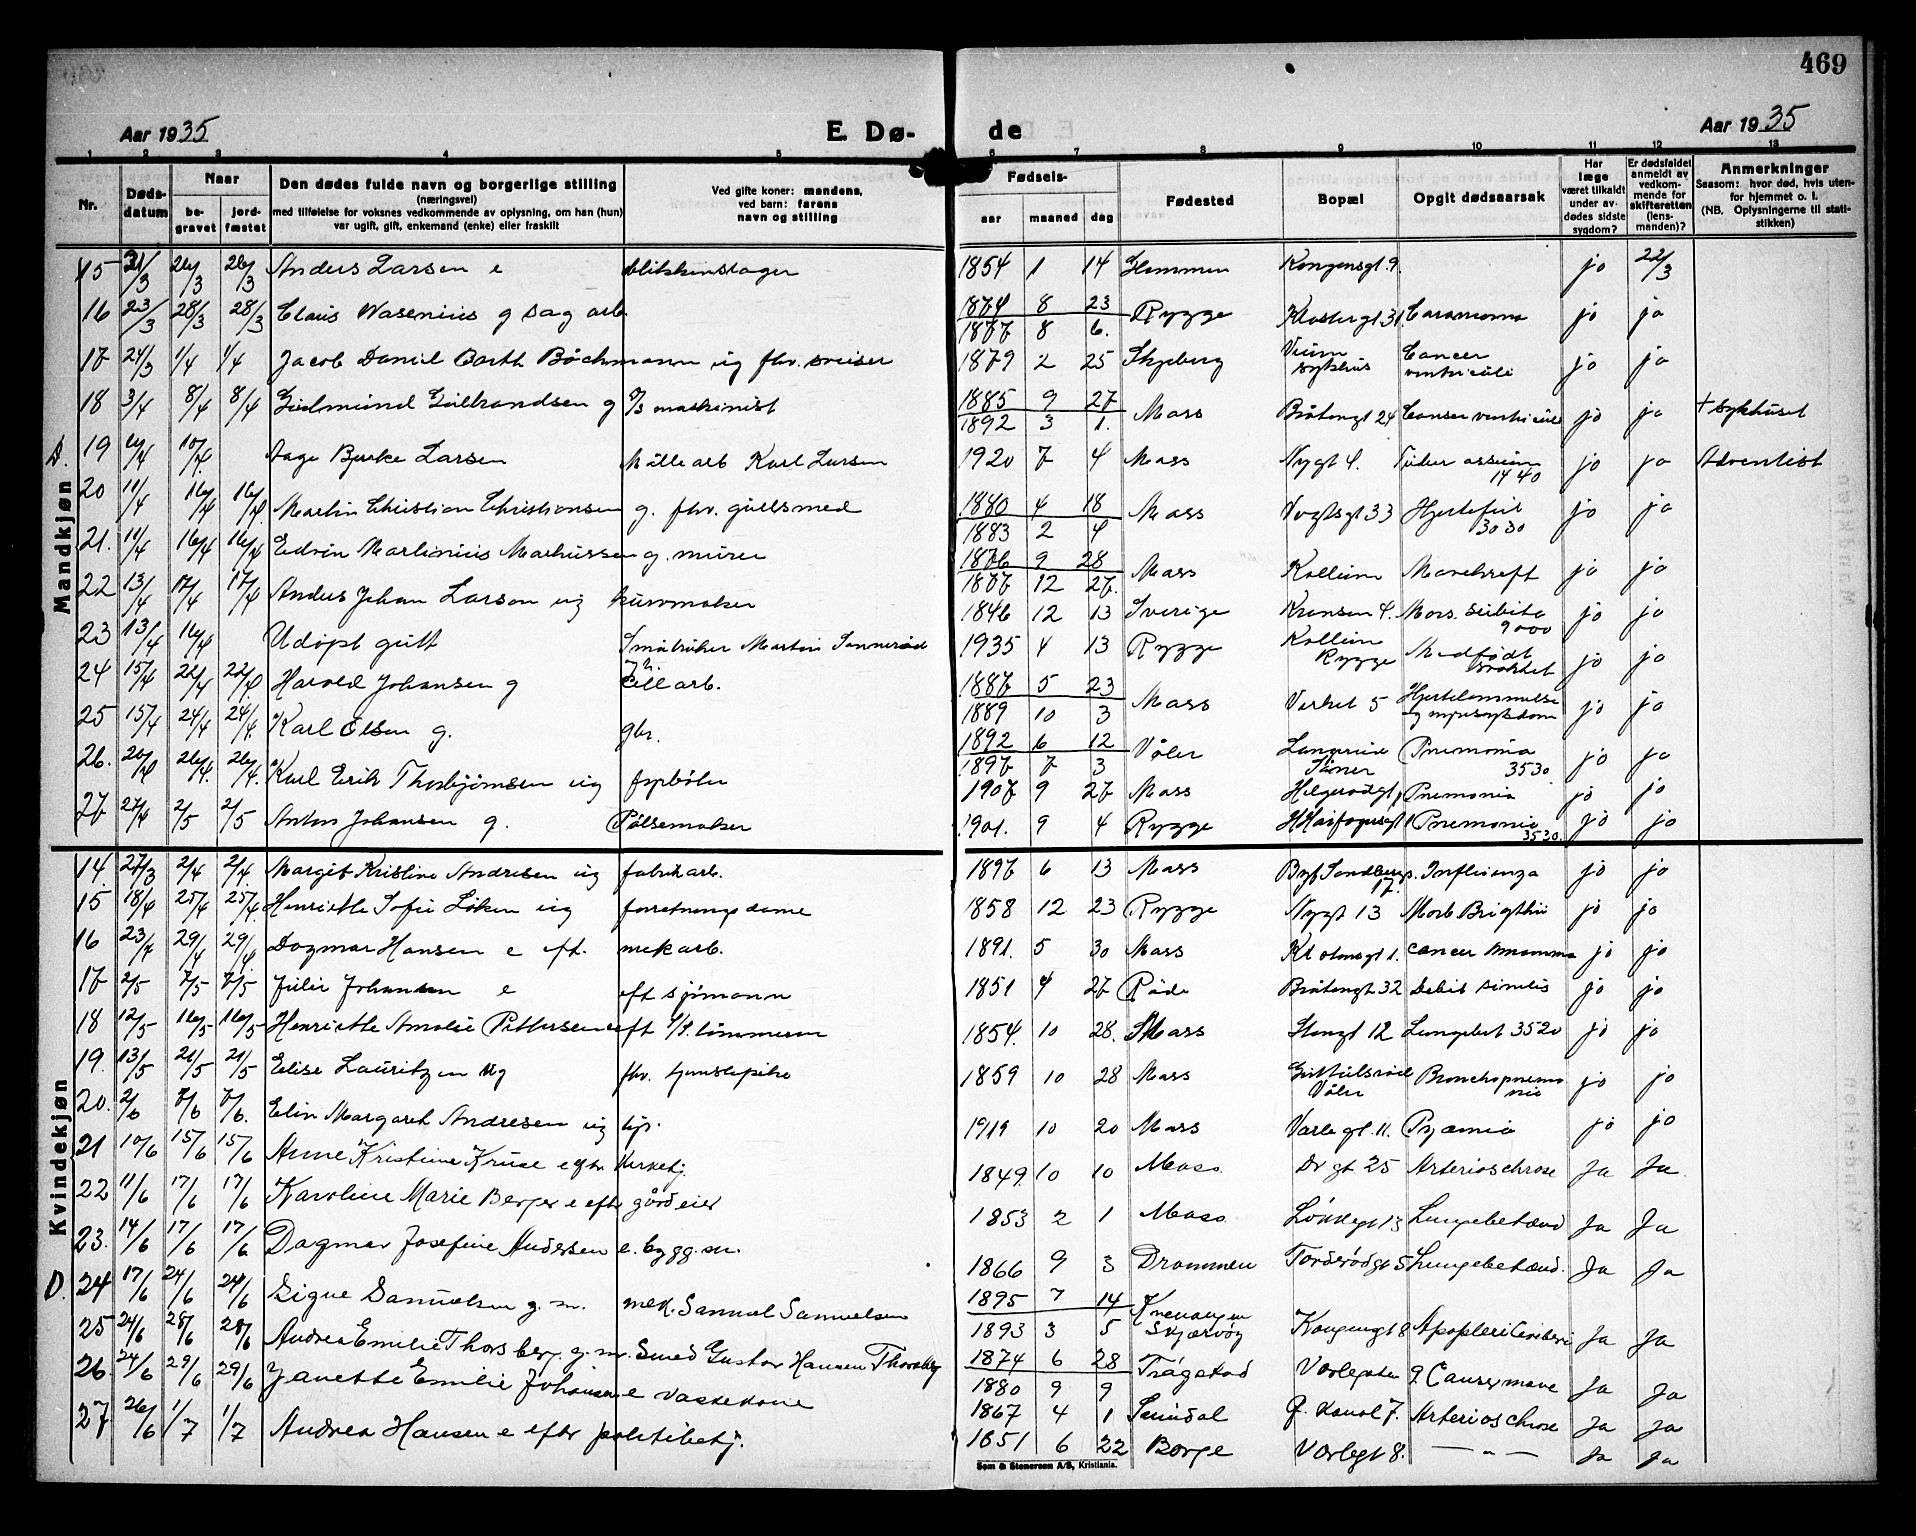 469
Aar 1935 E. Dø- de Aar 1935
1 2 3 4 5 6 7 8 9 10 11 12 13
Nr. Døds-datum Naar be-gravet jord-fæstet Den dødes fulde navn og borgerlige stilling (næringsvei) med tilføielse for voksnes vedkommende av oplysning, om han (hun) var ugift, gift, enkemand (enke) eller fraskilt Ved gifte koner: mandens, ved barn: farens navn og stilling Fødsels- aar maaned dag Fødested Bopæl Opgit dødsaarsak Har læge været tilkaldt under av-dødes sidste sygdom? Er dødsfaldet anmeldt av vedkom-mende for skifteretten (lens-manden)? Anmerkninger Saasom: hvor død, hvis uten-for hjemmet o. l. (NB. Oplysningerne til stati-stikken)
Mandkjøn
15 21/3 26/3 26/3 Anders Larsen e blikkenslager 1854 1 14 Glemmen Kongensgt. 9. jo 22/3
16 23/3 28/3 28/3 Claus Wasenius g sag arb. 1874 8 23 / 1877 8 6. Rygge Klostergt 31. Caranoma jo jo
17 24/3 1/4 1/4 Jacob Daniel Barth Böchmann ug fhv. sveiser 1879 2 25 Skjeberg Veum sykehus Cancer ventriculi jo jo
18 3/4 8/4 8/4 Gudmund Gulbrandsen g maskinist 1885 9 27 / 1892 3 1. Moss Bråtengt 24 Canser ventriculi jo jo + sykhuset
D. 19 6/4 10/4. Aage Bjerke Larsen Mølle arb Karl Larsen 1920 7 4 Moss Nygt 4. 1440 jo jo Adventist
20 11/4 16/4 16/4. Martin Christian Christiansen g. fhv. gullsmed 1880 4 18 / 1883 2 4 Moss Vogtsgt 33 Hjertefeil 3030 jo jo
21. 11/4 16/4 16/4 Edvin Martinius Markussen g. murer 1876 9 28 / 1877 12 27. Moss Kollum Mavekreft jo jo
22 13/4 17/4 17/4 Anders Johan Larson ug kurvmaker 1846 12 13 Sverige Kransen 4. Mors. subita 9000 jo jo
23 13/4 16/4 Udöpt gutt Småbruker Martin Sonnerød 1935 4 13 Rygge Kollum Rygge Medfødt svakhet jo jo
24 15/4 22/4 22/4. Harald Johansen g cell arb. 1887 5 23 / 1889 10 3 Moss Verket 5 Hjertelammelse og nyresykdom jo jo
25 15/4 24/4 24/4. Karl Olsen g. gbr. 1892 6 12 / 1897 7 3 Våler Pnemonia 3530 jo jo
26. 20/4 26/4. 26/4. Karl Erik Thorbjørnsen ug fyrbøter 1907 9 27 Moss Helgerødgt Pnemonia jo jo
27 27/4 2/5 2/5 Anton Johansen g. Pølsemaker 1901. 9 4 Rygge Pnemonia 3530. jo jo
Kvindekjøn
14 27/3 2/4 2/4 Margit Kristine Andresen ug fabrik arb. 1897 6 13 Moss Byf Sandbergs. 17. Influenza jo jo
15 18/4 25/4 25/4 Henriette Sofie Löken ug forretningsdame 1858 12 23 Rygge Nygt 13 Morb Brigthii jo jo
16 23/4 29/4 29/4 Dagmar Hansen e eft. mek arb. 1891. 5 30 Moss 1. cancer mamma jo jo
17 2/5 7/5 7/5 Julie Johansen e eft sjömann 1851 4 27 Råde Bråtengt 32 Debil similis jo jo
18 12/5 16/5 16/5 Henriette Amalie Pettersen e eft tömmerm 1854. 10 28. Moss Stengt 12 Lungebet 3520 jo jo
19. 13/5 21/5 21/5 Elise Lauritzen ug fhv. tjenstepike 1859 10 28 Moss Guttulsrød Våler Bronchopnemonia jo jo
20. 2/6 7/6 7/6. Elin Margaret Andresen ug tjp. 1919 10 20 Moss Varlegt. 11. Pyæmia jo jo
21 10/6 15/6 15/6 Anne Kristine Kruse e efter kirketj. 1849. 10 10 Moss. Dr gt. 25 Arterioschrose Ja Ja.
22 11/6 17/6 17/6 Karoline Marie Berger e eftr gårdeier 1853 2 1 Moss. Løkkegt 13 Lungebetænd Ja Ja
23. 14/6 17/6 17/6 Dagmar Josefine Andersen e. bygg.m. 1866 9 3 Drammen Torderødgt 5 Lungebetænd. Ja Ja
D. 24 17/6 24/6 24/6 Signe Samuelsen g. m. mek. Samuel Samuelsen 1895 7 14 / 1893 3 5 Kvenangen Skjærvøy Kongengt 8 Ja Ja
25 24/6 28/6 28/6 Andrea Emilie Thorsberg. g. m. Smed Gustav Hansen Thorsberg 1874 6 28 / 1880 9 9 Trøgstad Varlegaten 9. Cancermave Ja Ja
26. 24/6 29/6 29/6 Janette Emilie Johansen e vaskekone 1867 4 1 Sundal J. Kanal 7. Arterioschrose Ja Ja
27 26/6 1/7 1/7 Andrea Hansen e eftr politibetj. 1851 6 22 Borge Varlegt 8. — " — Ja Ja
Sem & Stenersen A/S, Kristiania.